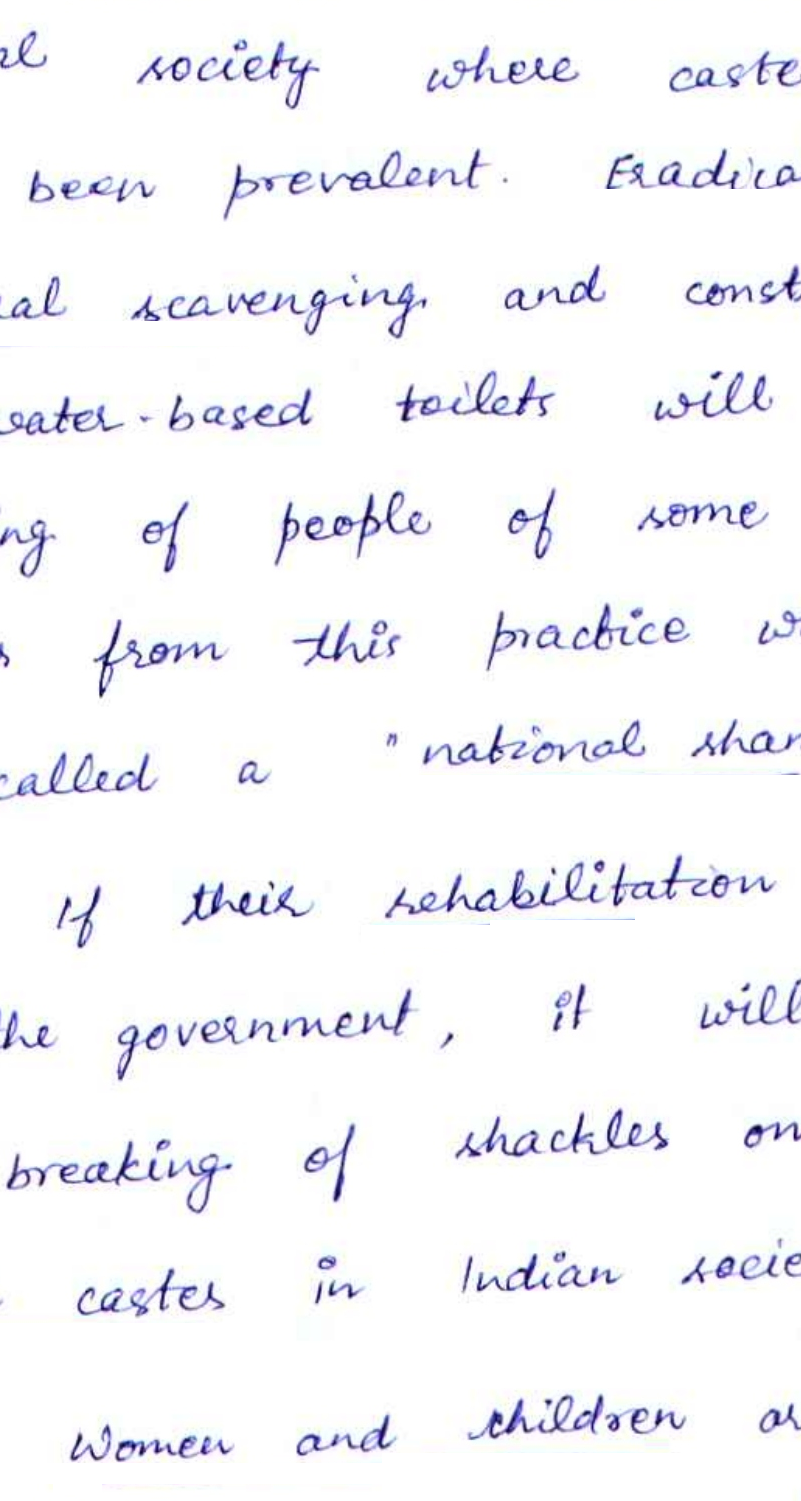 society where caste
been prevalent. Eradica
al scavenging and const
water-based toilets will
ng of people of some
s from this practice w
called a "national sham
If their rehabilitation
the government, it will
breaking of shackles on
castes in Indian socie
Women and children ar